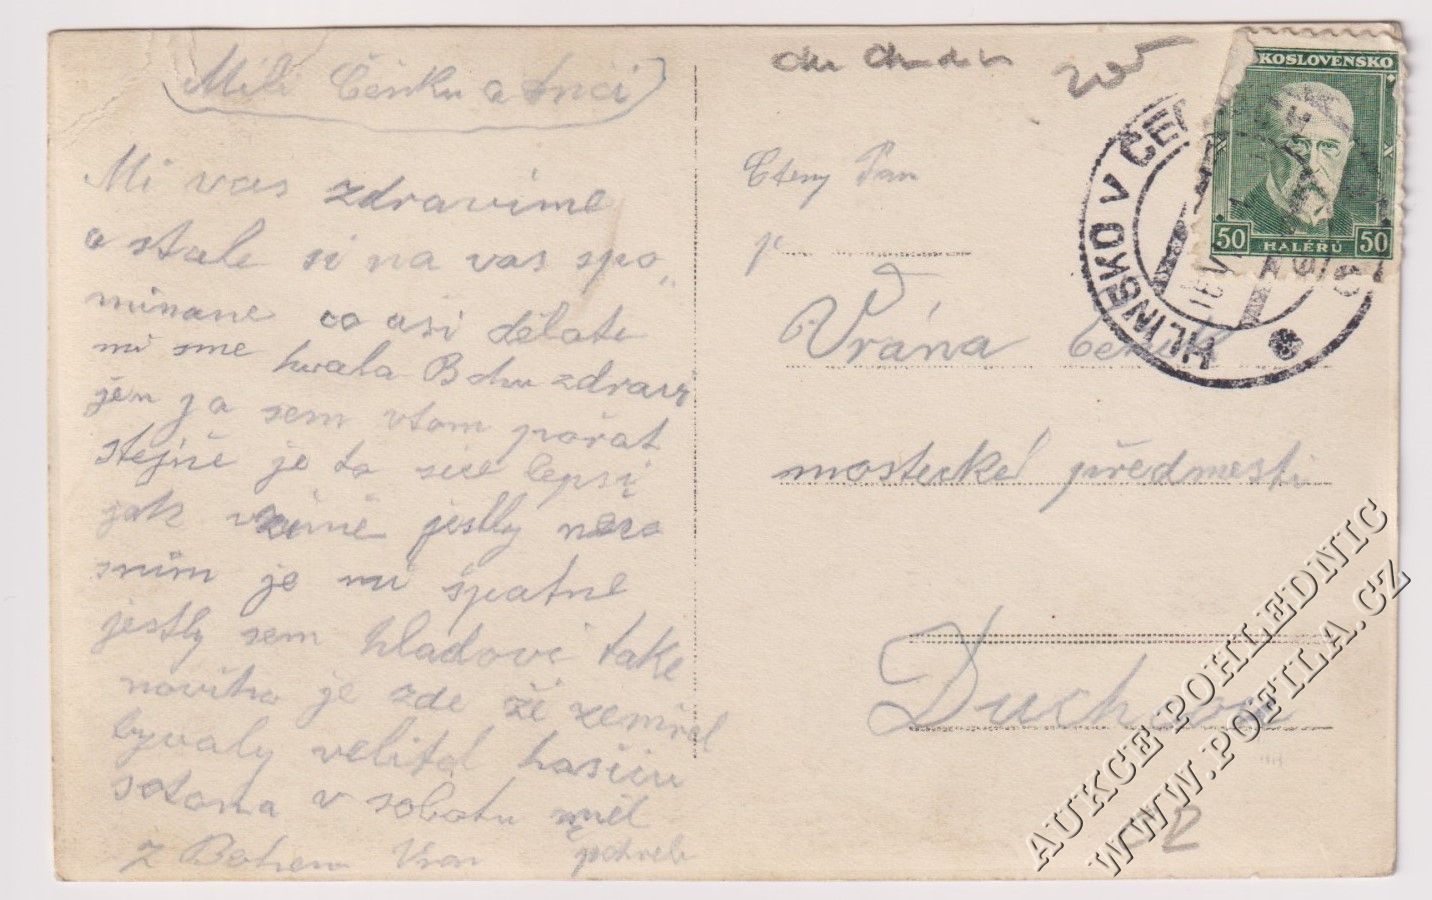 Mili Čenku a
Mi vas zdravime
a stale si na vas spo„
minane co asi dělate
mi sme hwala Bohu zdrav
ja sem vtom pořat
stejně je to sice lepsi
jak v zimě jestly neco
sním je mi špatne
jestly sem hladovi take
noviho je zde že zemřel
byvaly velitel hasičů
sotona v sobotu měl
pohreb
z Bohem Vran
ok. Chrudim
205
Cteny Pan
p
Vrána Čeněk
mostecké předmesti
Duchcov
KOSLOVENSKO
50 HALÉRŮ 50
HLINSKO V ČE
AUKCE POHLEDNIC
WWW.POFILA.CZ